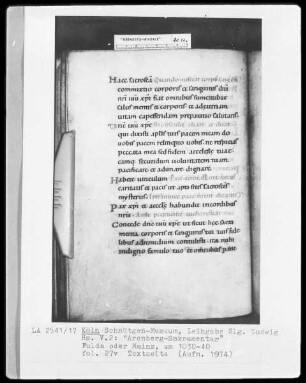 Haec sacrosca
commixtio corporis et sanguinis dni
nri ihu xpi fiat omnibus sumentibus
salus mentis et corporis et ad eternam
uitam capessendam preparatio salutaris.
Dne ihu xpe
qui dixisti aplis tuis pacem meam do
uobis pacem relinquo uobis ne respicias
peccata mea sed fidem aecclesie tuae
eamque secundum uoluntatem tuam
pacificare et adunare dignare.
Habete uinculum
caritatis et pacis ut apti sitis sacrosctis
mysteriis
Pax xpi et aecclesiae habundet in cordibus
nris
Concede dne ihu xpe ut sicut haec sacra
menta corporis et sanguinis tui fide
libus ad remedium contulisti ita mihi
indigno famulo tuo et omnibus per
LA 2541/17 Köln Schnütgen-Museum, Leihgabe Slg. Ludwig
Hs. V.2: "Arenberg-Sakramentar"
Fulda oder Mainz, um 1030-40
fol. 27v Textseite (Aufn. 1974)